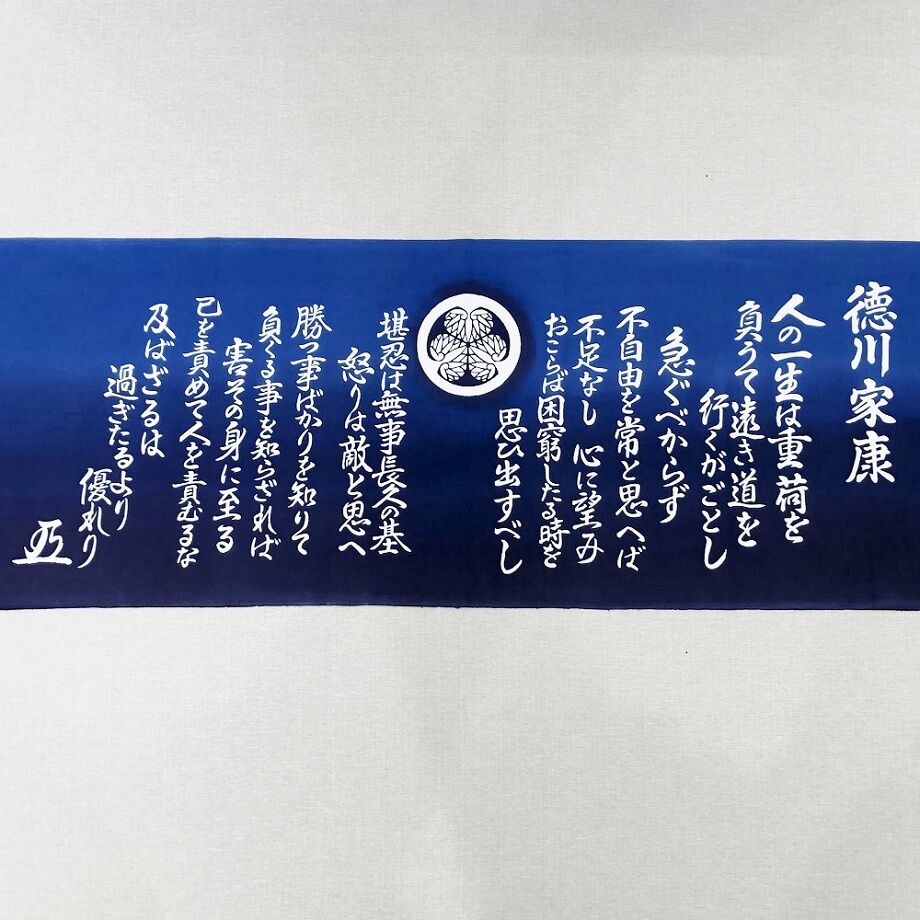 徳川家康
人の一生は重荷を
負うて遠き道を
行くがごとし
急ぐべからず
不自由を常と思へば
不足なし 心に望み
おこらば困窮したる時を
思ひ出すべし
堪忍は無事長久の基
怒りは敵と思へ
勝つ事ばかりを知りて
負くる事を知らざれば
害その身に至る
己を責めて人を責むるな
及ばざるは
過ぎたるより
優れり